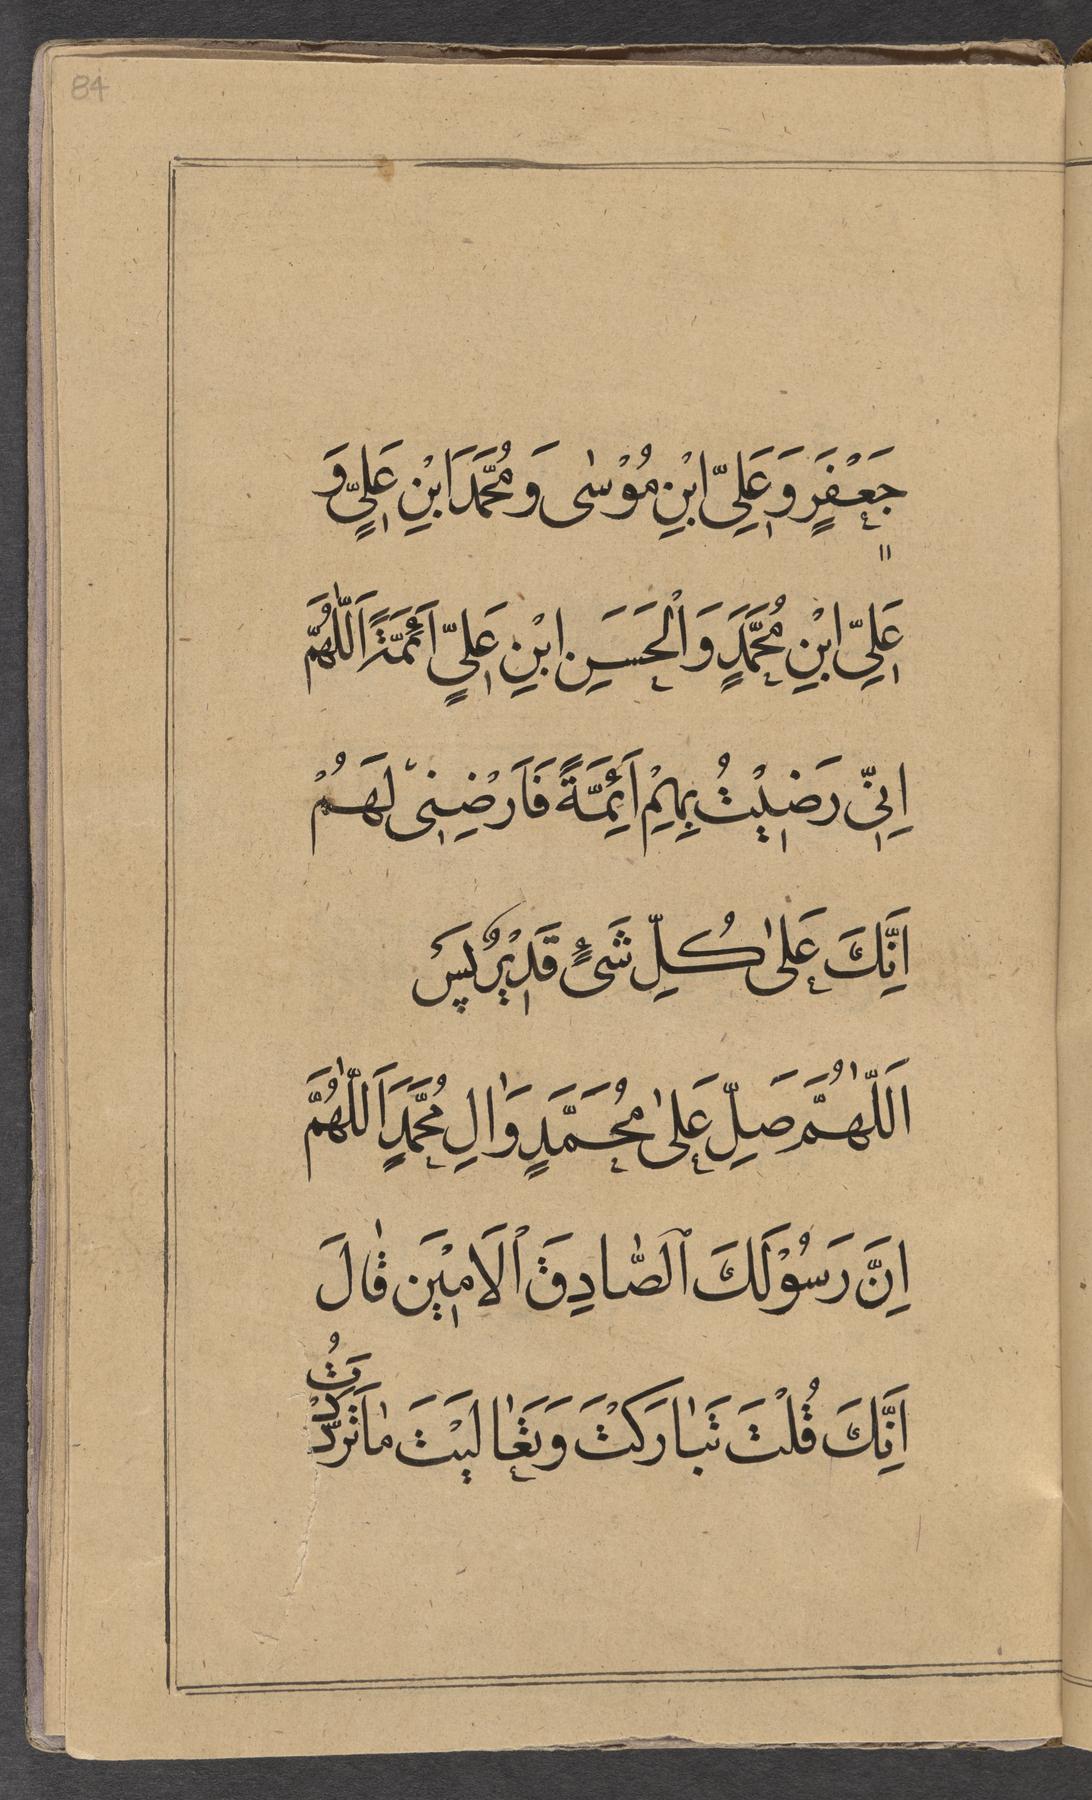 84
جَعْفَرٍ وَ عَلِيِّ ابْنِ مُوْسٰى وَ مُحَمَّدَ ابْنِ عَلِيٍّ وَ
عَلِيِّ ابْنِ مُحَمَّدٍ وَ الْحَسَنِ ابْنِ عَلِيٍّ اَئِمَّةً اَللّٰهُمَّ
اِنِّي رَضِيْتُ بِهِمْ اَئِمَّةً فَارْضِنِيْ لَهُمْ
اِنَّكَ عَلٰى كُلِّ شَیْءٍ قَدِيْرٌ پَسْ
اَللّٰهُمَّ صَلِّ عَلٰى مُحَمَّدٍ وَ اٰلِ مُحَمَّدٍ اَللّٰهُمَّ
اِنَّ رَسُوْلَكَ الصّٰادِقَ الْاَمِيْنَ قٰالَ
اِنَّكَ قُلْتَ تَبٰارَكْتَ وَ تَعٰالَيْتَ مٰا تَرَدَّدْتُ